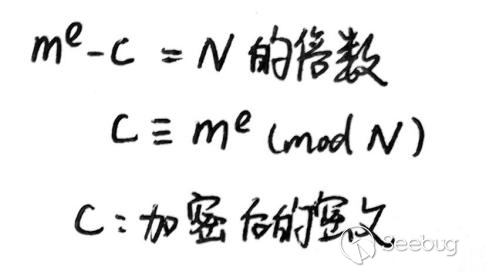 m^e - C = N 的倍数
C ≡ m^e (mod N)
C:加密后的密文
Seebug